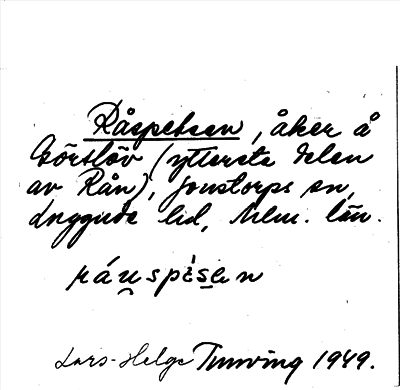 Råspetsen, åker å
Görslöv (yttersta delen
av Rån), Jonstorps sn,
Luggude hd, Mlm. län.
ráu̯spèsen
Lars-Helge Tunving 1949.